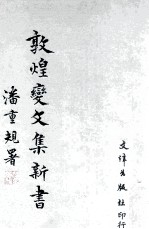 敦煌變文集新書
潘重規署
文津出版社印行